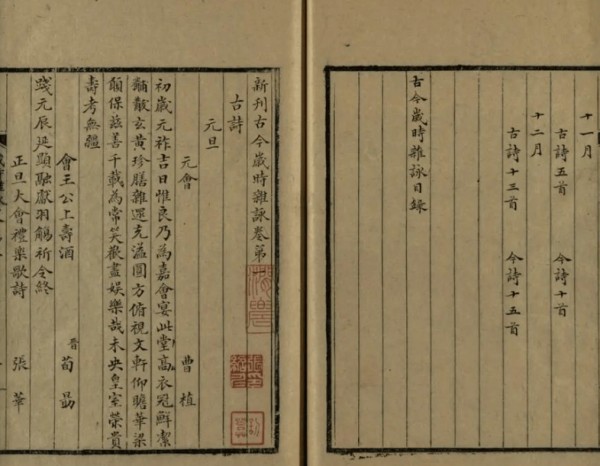 十一月
古詩五首 今詩十首
十二月
古詩十三首 今詩十五首
古今歲時雜詠目錄
新刊古今歲時雜詠卷第
古詩
元旦
元會 曹植
初歲元祚吉日惟良乃為嘉會宴此堂高衣冠鮮潔
黼黻玄黃珍膳雜遝充溢圓方俯視文軒仰瞻華梁
願保茲善千載為常笑歡盡娛樂哉未央皇室榮貴
壽考無疆
會王公上壽酒 晋荀勗
踐元辰延顯融獻羽觴祈令終
正旦大會禮樂歌詩 張華